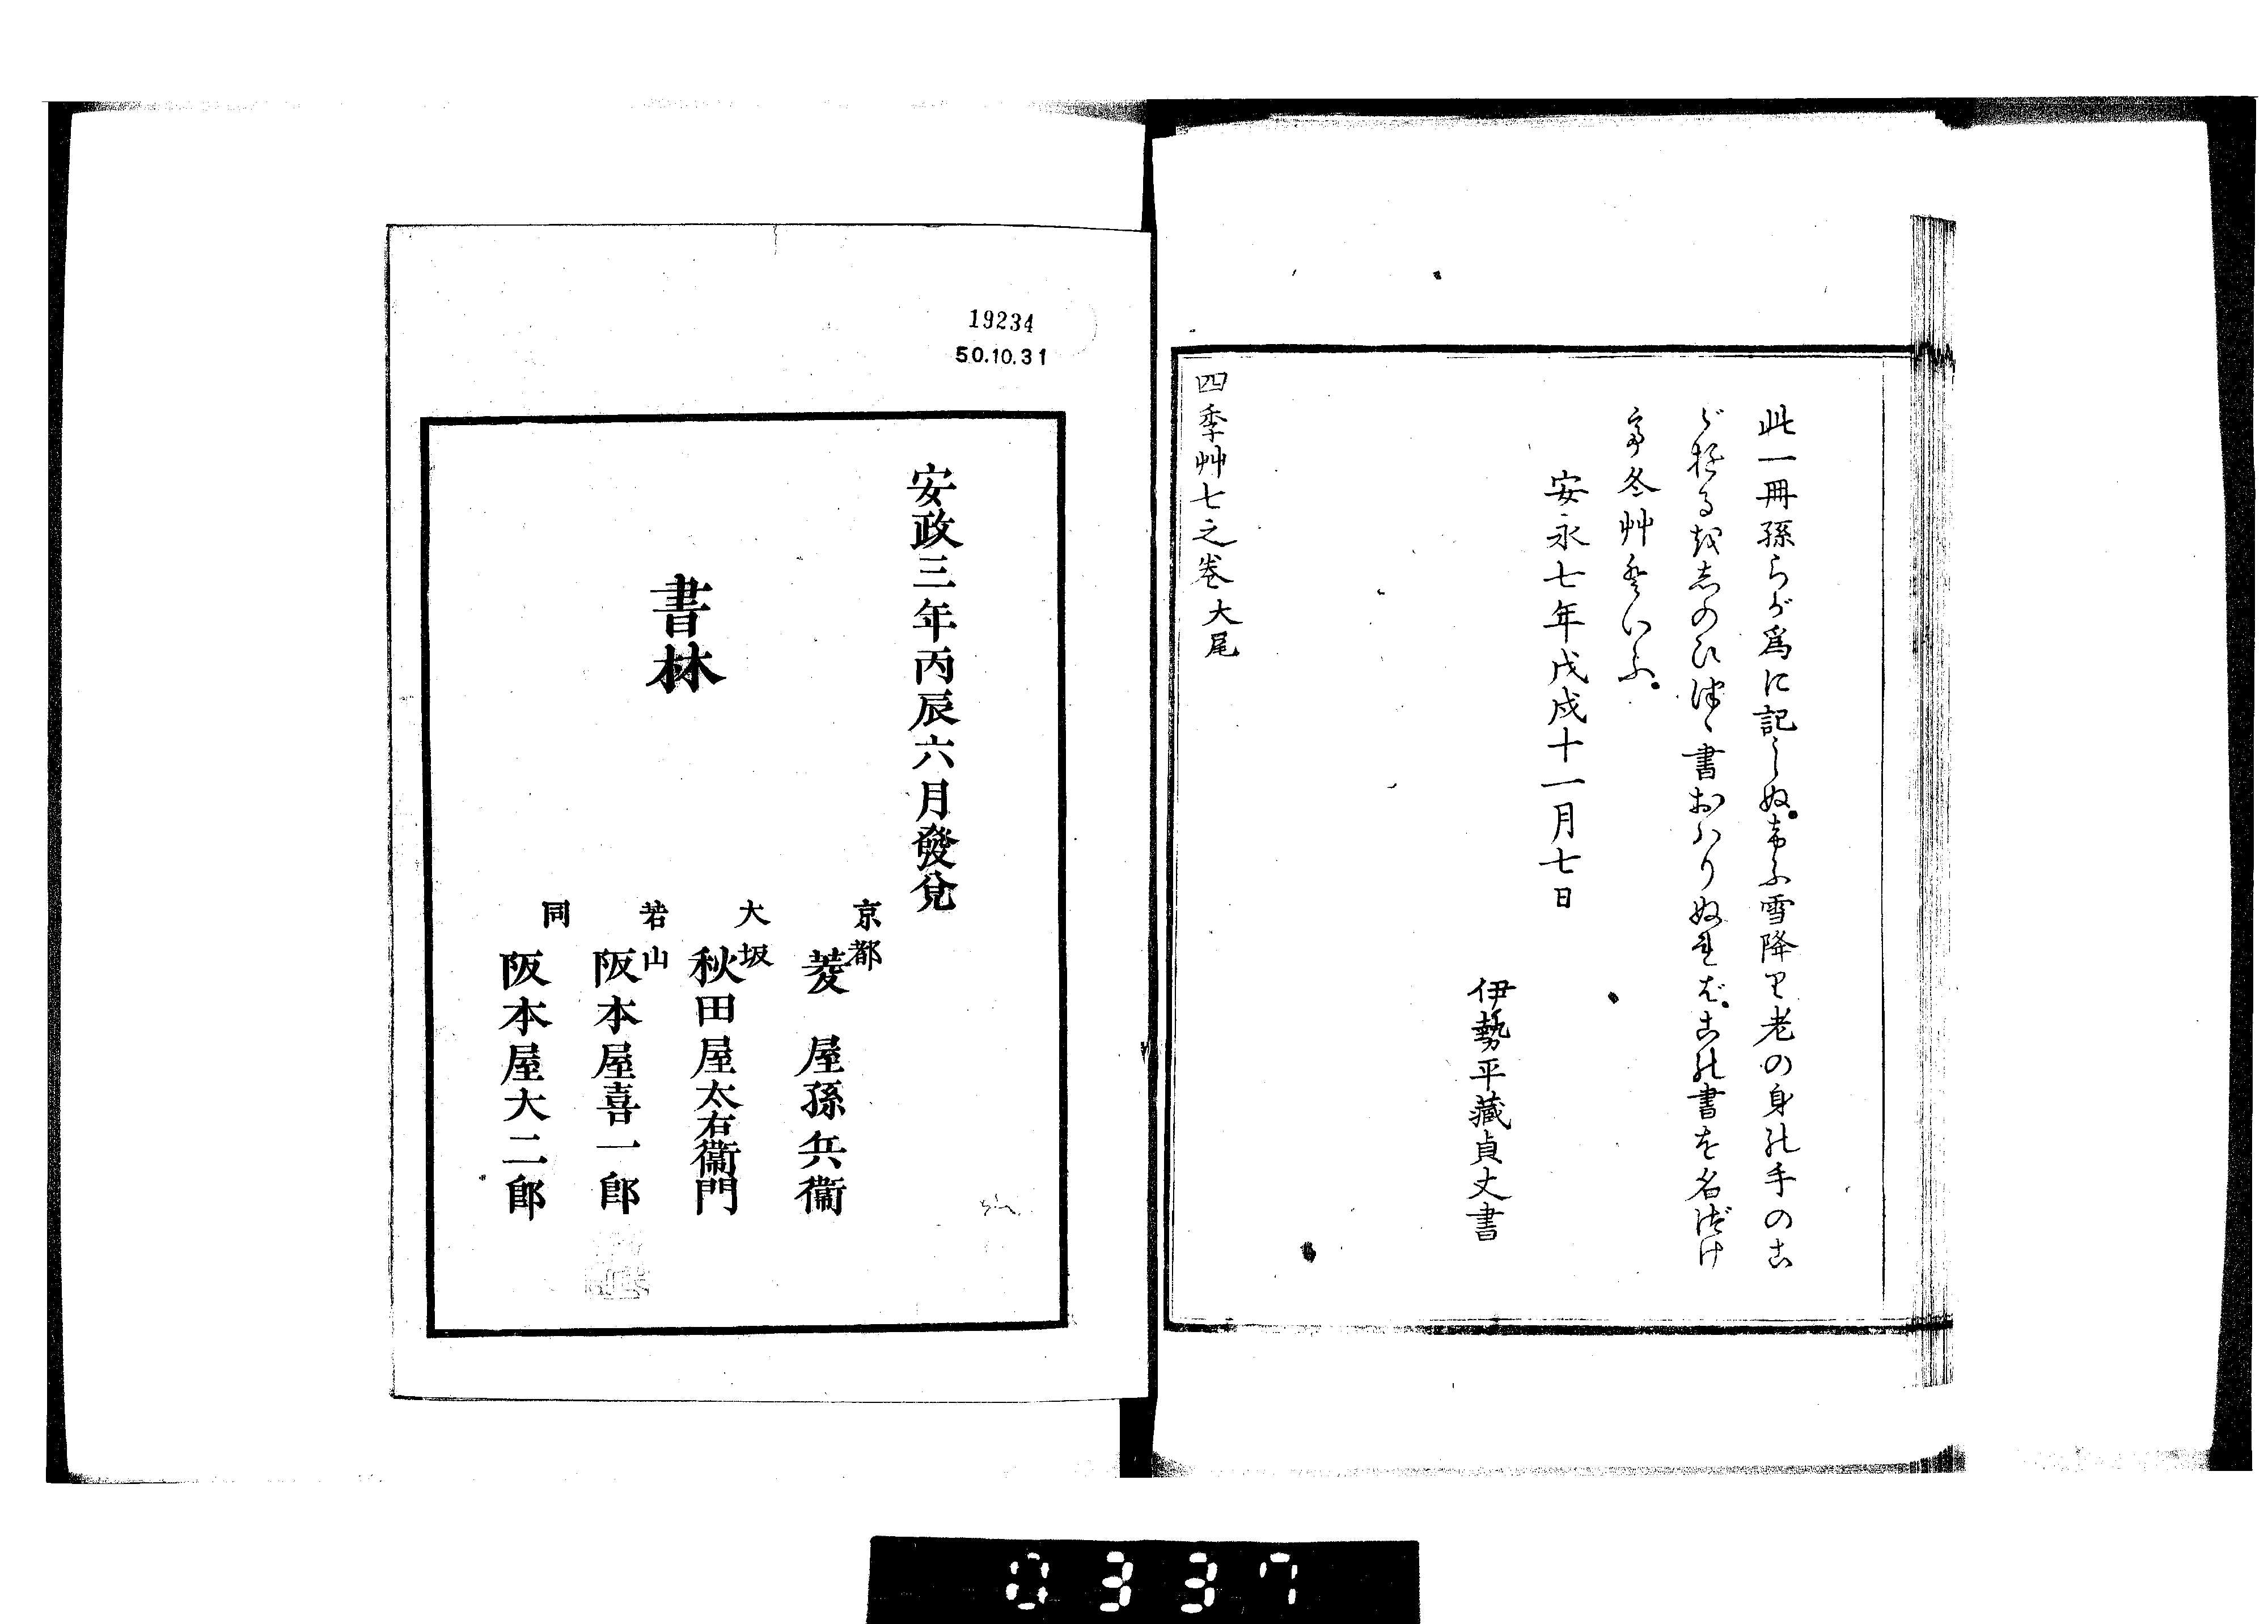 此一冊孫らが爲に記しぬ。けふ雪降り老の身の手のこ
ゞゆるをしのびつゝ書おはりぬれば。この書を名づけ
て冬艸といふ。
安永七年戊戌十一月七日
伊勢平藏貞丈書
四季艸七之巻大尾
19234
50.10.31
安政三年丙辰六月發兌
書林
京都 菱屋孫兵衞
大坂 秋田屋太右衞門
若山 阪本屋喜一郎
同 阪本屋大二郎
0337